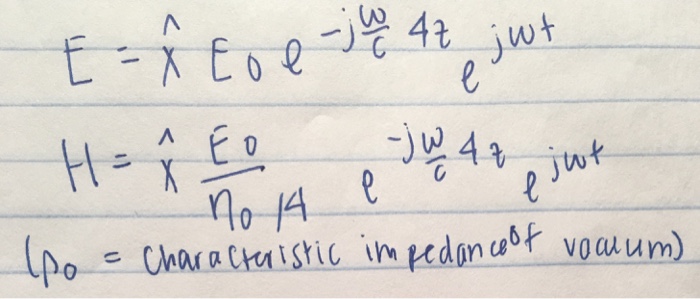 E = x̂ E0 e^{-j ω/c 4z} e^{jωt}
H = x̂ E0 / (η0 / 4) e^{-j ω/c 4z} e^{jωt}
(ρ0 = characteristic impedance of vacuum)